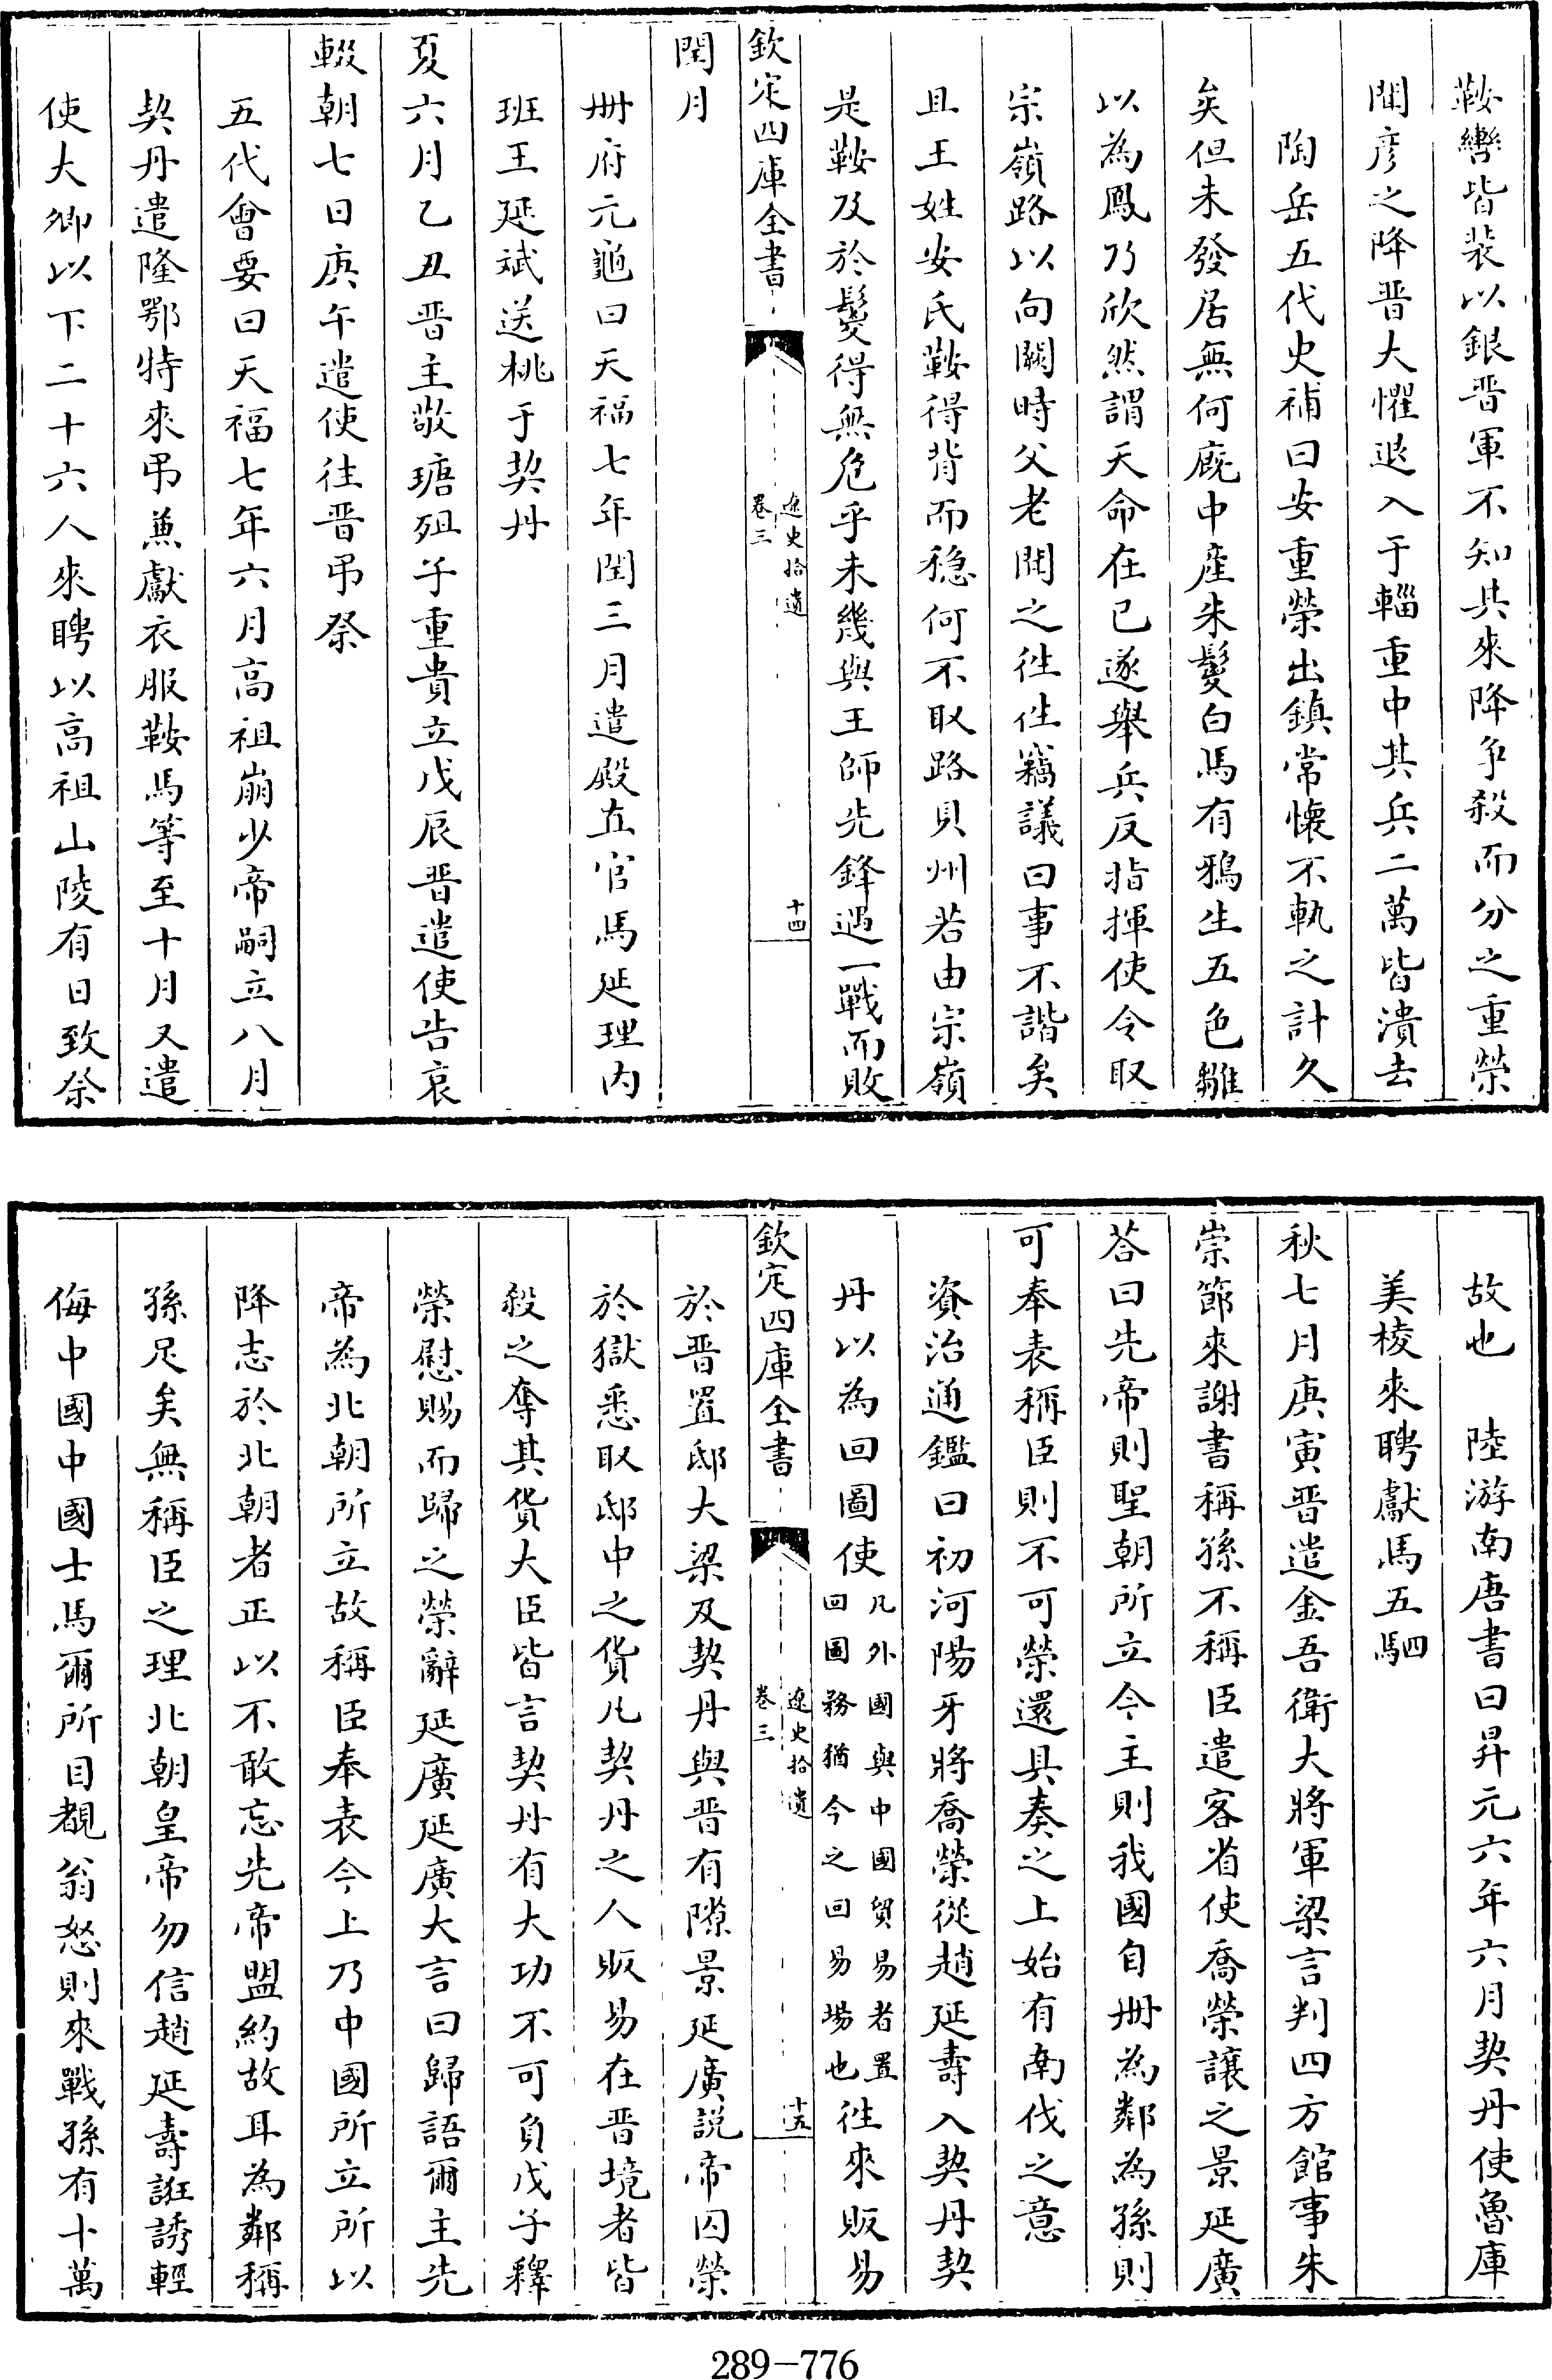 鞍轡皆裝以銀晋軍不知其來降爭殺而分之重榮
聞彦之降晋大懼退入于輜重中其兵二萬皆潰去
陶岳五代史補曰安重榮出鎮常懷不軌之計久
矣但未發居無何廐中産朱鬉白馬有鴉生五色雛
以為鳳乃欣然謂天命在已遂舉兵反指揮使令取
宗嶺路以向闕時父老聞之徃徃竊議曰事不諧矣
且王姓安氏鞍得背而穏何不取路貝州若由宗嶺
是鞍及於鬉得無危乎未幾與王師先鋒遇一戰而敗
欽定四庫全書
遼史拾遺
卷三
十四
閏月
冊府元龜曰天福七年閏三月遣殿直官馬延理内
班王延斌送桃于契丹
夏六月乙丑晋主敬瑭殂子重貴立戊辰晋遣使告哀
輟朝七日庚午遣使往晋弔祭
五代會要曰天福七年六月高祖崩少帝嗣立八月
契丹遣隆鄂特來弔兼獻衣服鞍馬等至十月又遣
使大卿以下二十六人來聘以高祖山陵有日致祭
故也　陸游南唐書曰昇元六年六月契丹使魯庫
美棱來聘獻馬五駟
秋七月庚寅晋遣金吾衛大將軍梁言判四方館事朱
崇節來謝書稱孫不稱臣遣客省使喬榮讓之景延廣
答曰先帝則聖朝所立今主則我國自冊為鄰為孫則
可奉表稱臣則不可榮還具奏之上始有南伐之意
資治通鑑曰初河陽牙將喬榮從趙延壽入契丹契
丹以為回圖使凡外國與中國貿易者置回圖務猶今之回易場也徃來販易
欽定四庫全書
遼史拾遺
卷三
十五
於晋置邸大梁及契丹與晋有隙景延廣説帝囚榮
於獄悉取邸中之貨凡契丹之人販易在晋境者皆
殺之奪其貨大臣皆言契丹有大功不可負戊子釋
榮慰賜而歸之榮辭延廣延廣大言曰歸語爾主先
帝為北朝所立故稱臣奉表今上乃中國所立所以
降志於北朝者正以不敢忘先帝盟約故耳為鄰稱
孫足矣無稱臣之理北朝皇帝勿信趙延壽誑誘輕
侮中國中國士馬爾所目覩翁怒則來戰孫有十萬
289-776